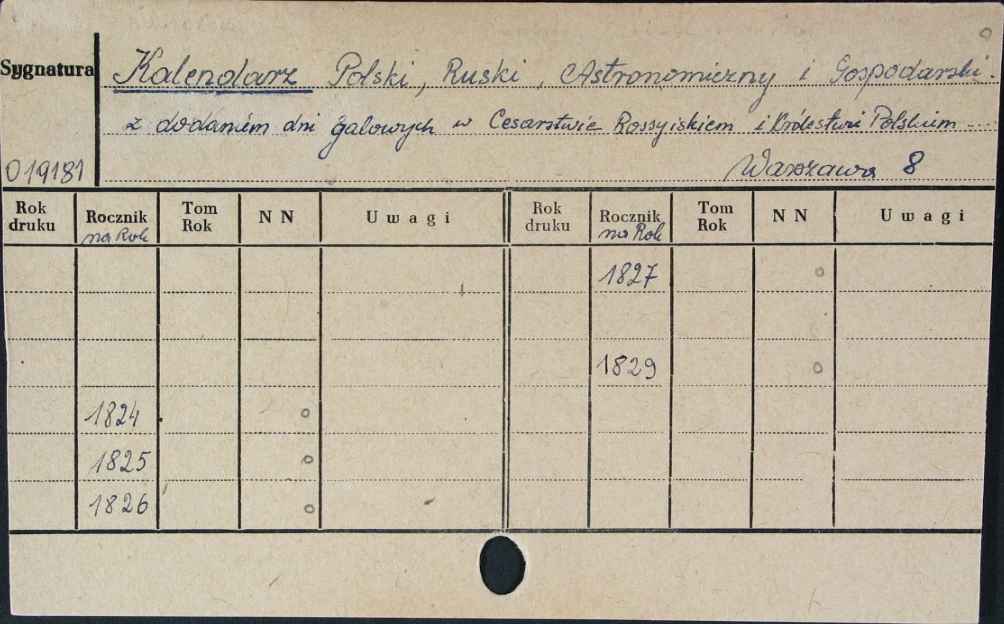 Sygnatura
Kalendarz Polski, Ruski, Astronomiczny i Gospodarski.
z dodaniem dni galowych w Cesarstwie Rossyiskiem i Królestwi Polskiem
019181
Warszawa 8
Rok druku Rocznik na Rok Tom Rok N N Uwagi Rok druku Rocznik na Rok Tom Rok N N Uwagi
1827 o
1829 o
1824 o
1825 o
1826 o